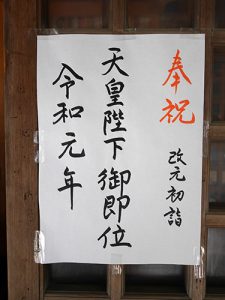 奉祝
改元初詣
天皇陛下御即位
令和元年